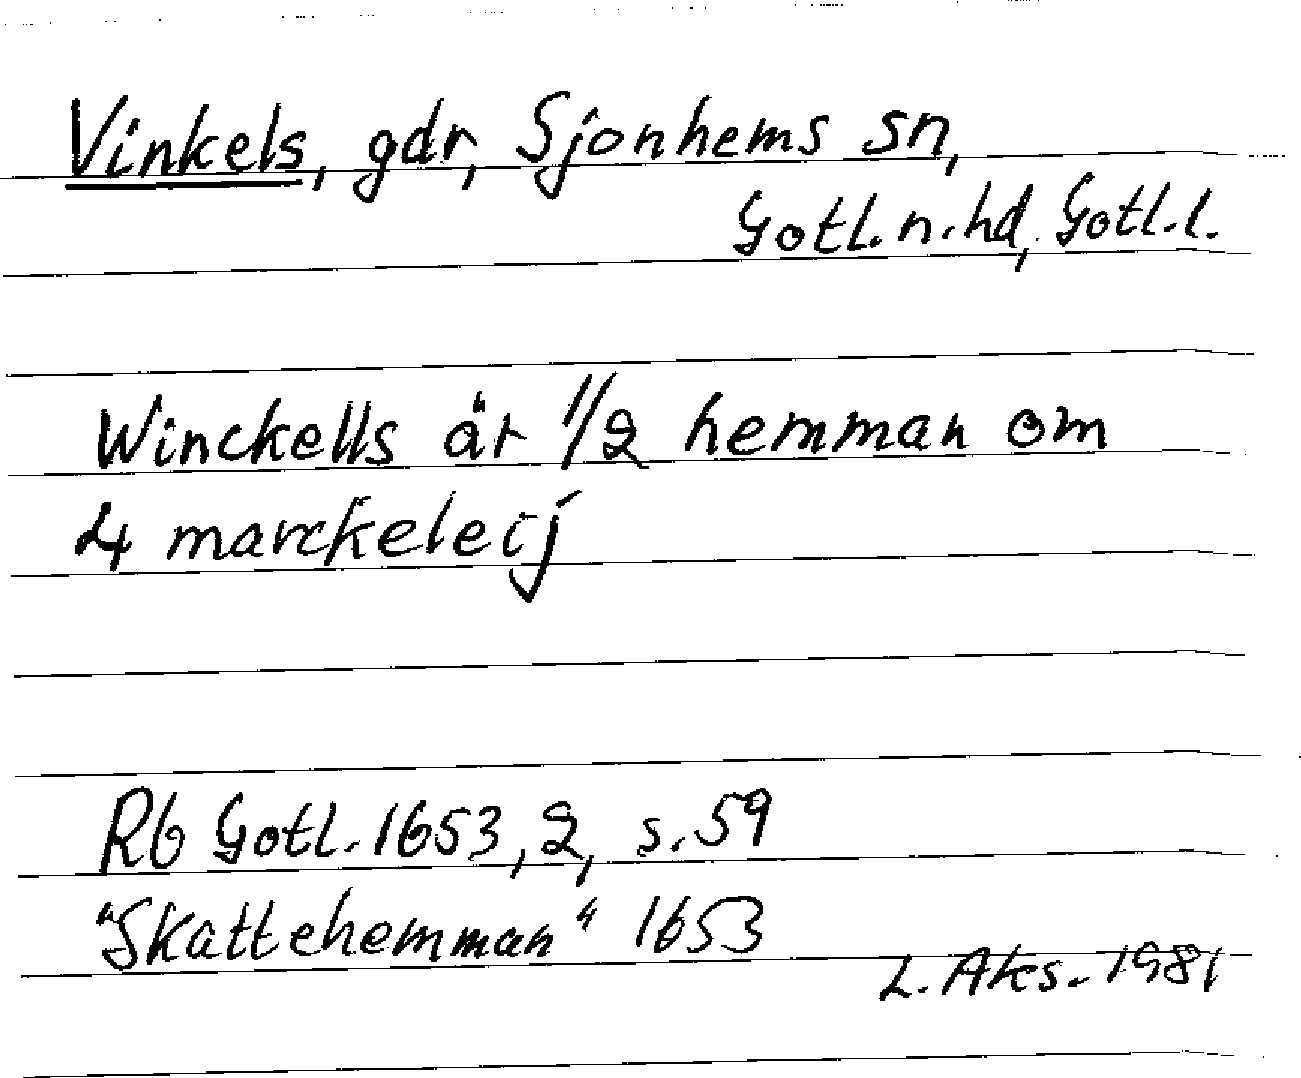 Vinkels, gdr, Sjonhems sn,
Gotl. n. hd, Gotl. l.
Winckells är 1/2 hemman om
4 marckeleij
Rb Gotl. 1653, 2, s. 59
"Skattehemman" 1653
L. Aks. 1981